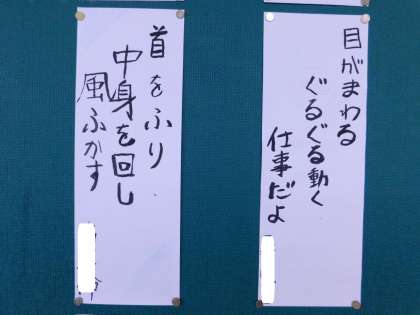 目がまわる
ぐるぐる動く
仕事だよ
首をふり
中身を回し
風ふかす